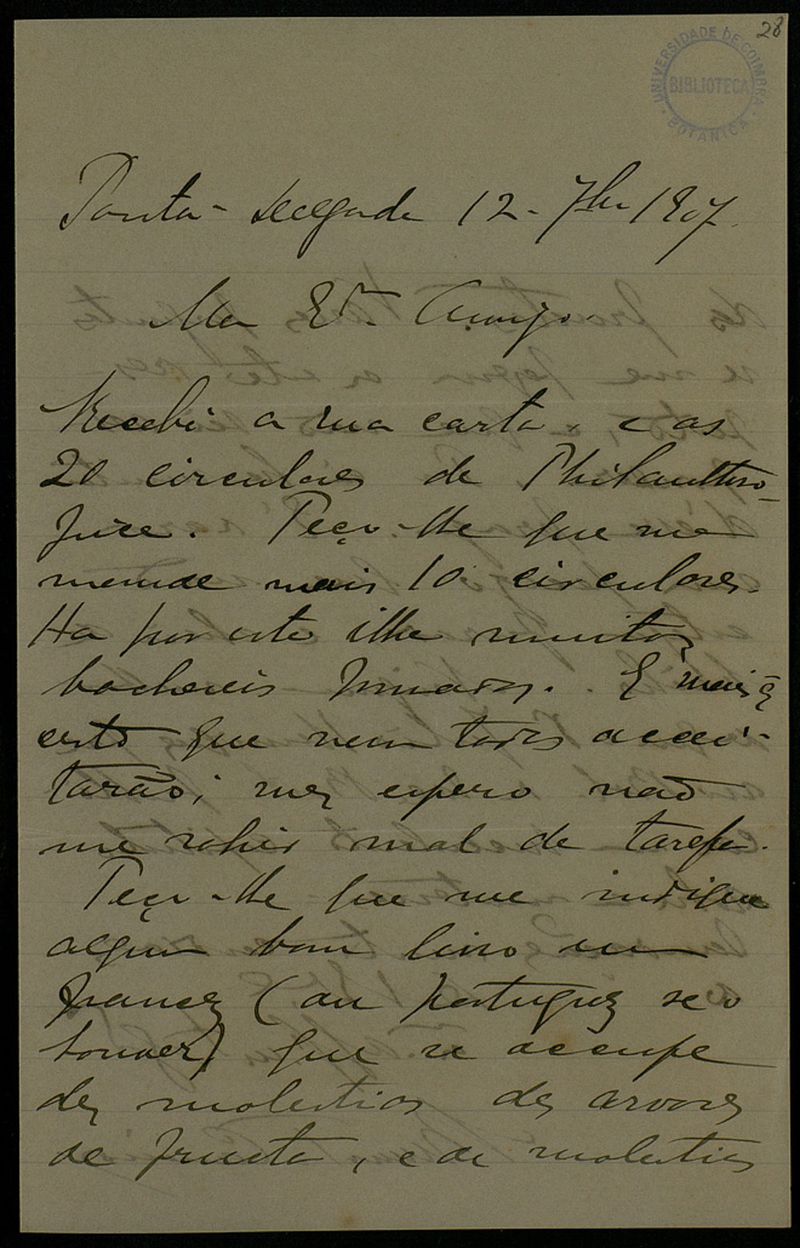 28
UNIVERSIDADE DE COIMBRA
BIBLIOTECA
BOTANICA
Ponta-Delgada 12-7bro 1907.
Meu Exmo Amigo.
Recebi a sua carta, e as
20 circulares de Philantro-
Peço-lhe que me
mande mais 10 circulares.
Ha por esta ilha muitos
bachareis formados. É mais q
certo que nem todos accei-
tarão; mas espero não
me sahir mal da tarefa.
Peço-lhe que me indique
algum bom livro em
francez (ou portuguez se o
houver) que se occupe
das molestias das arvores
de fructa, e de molestias